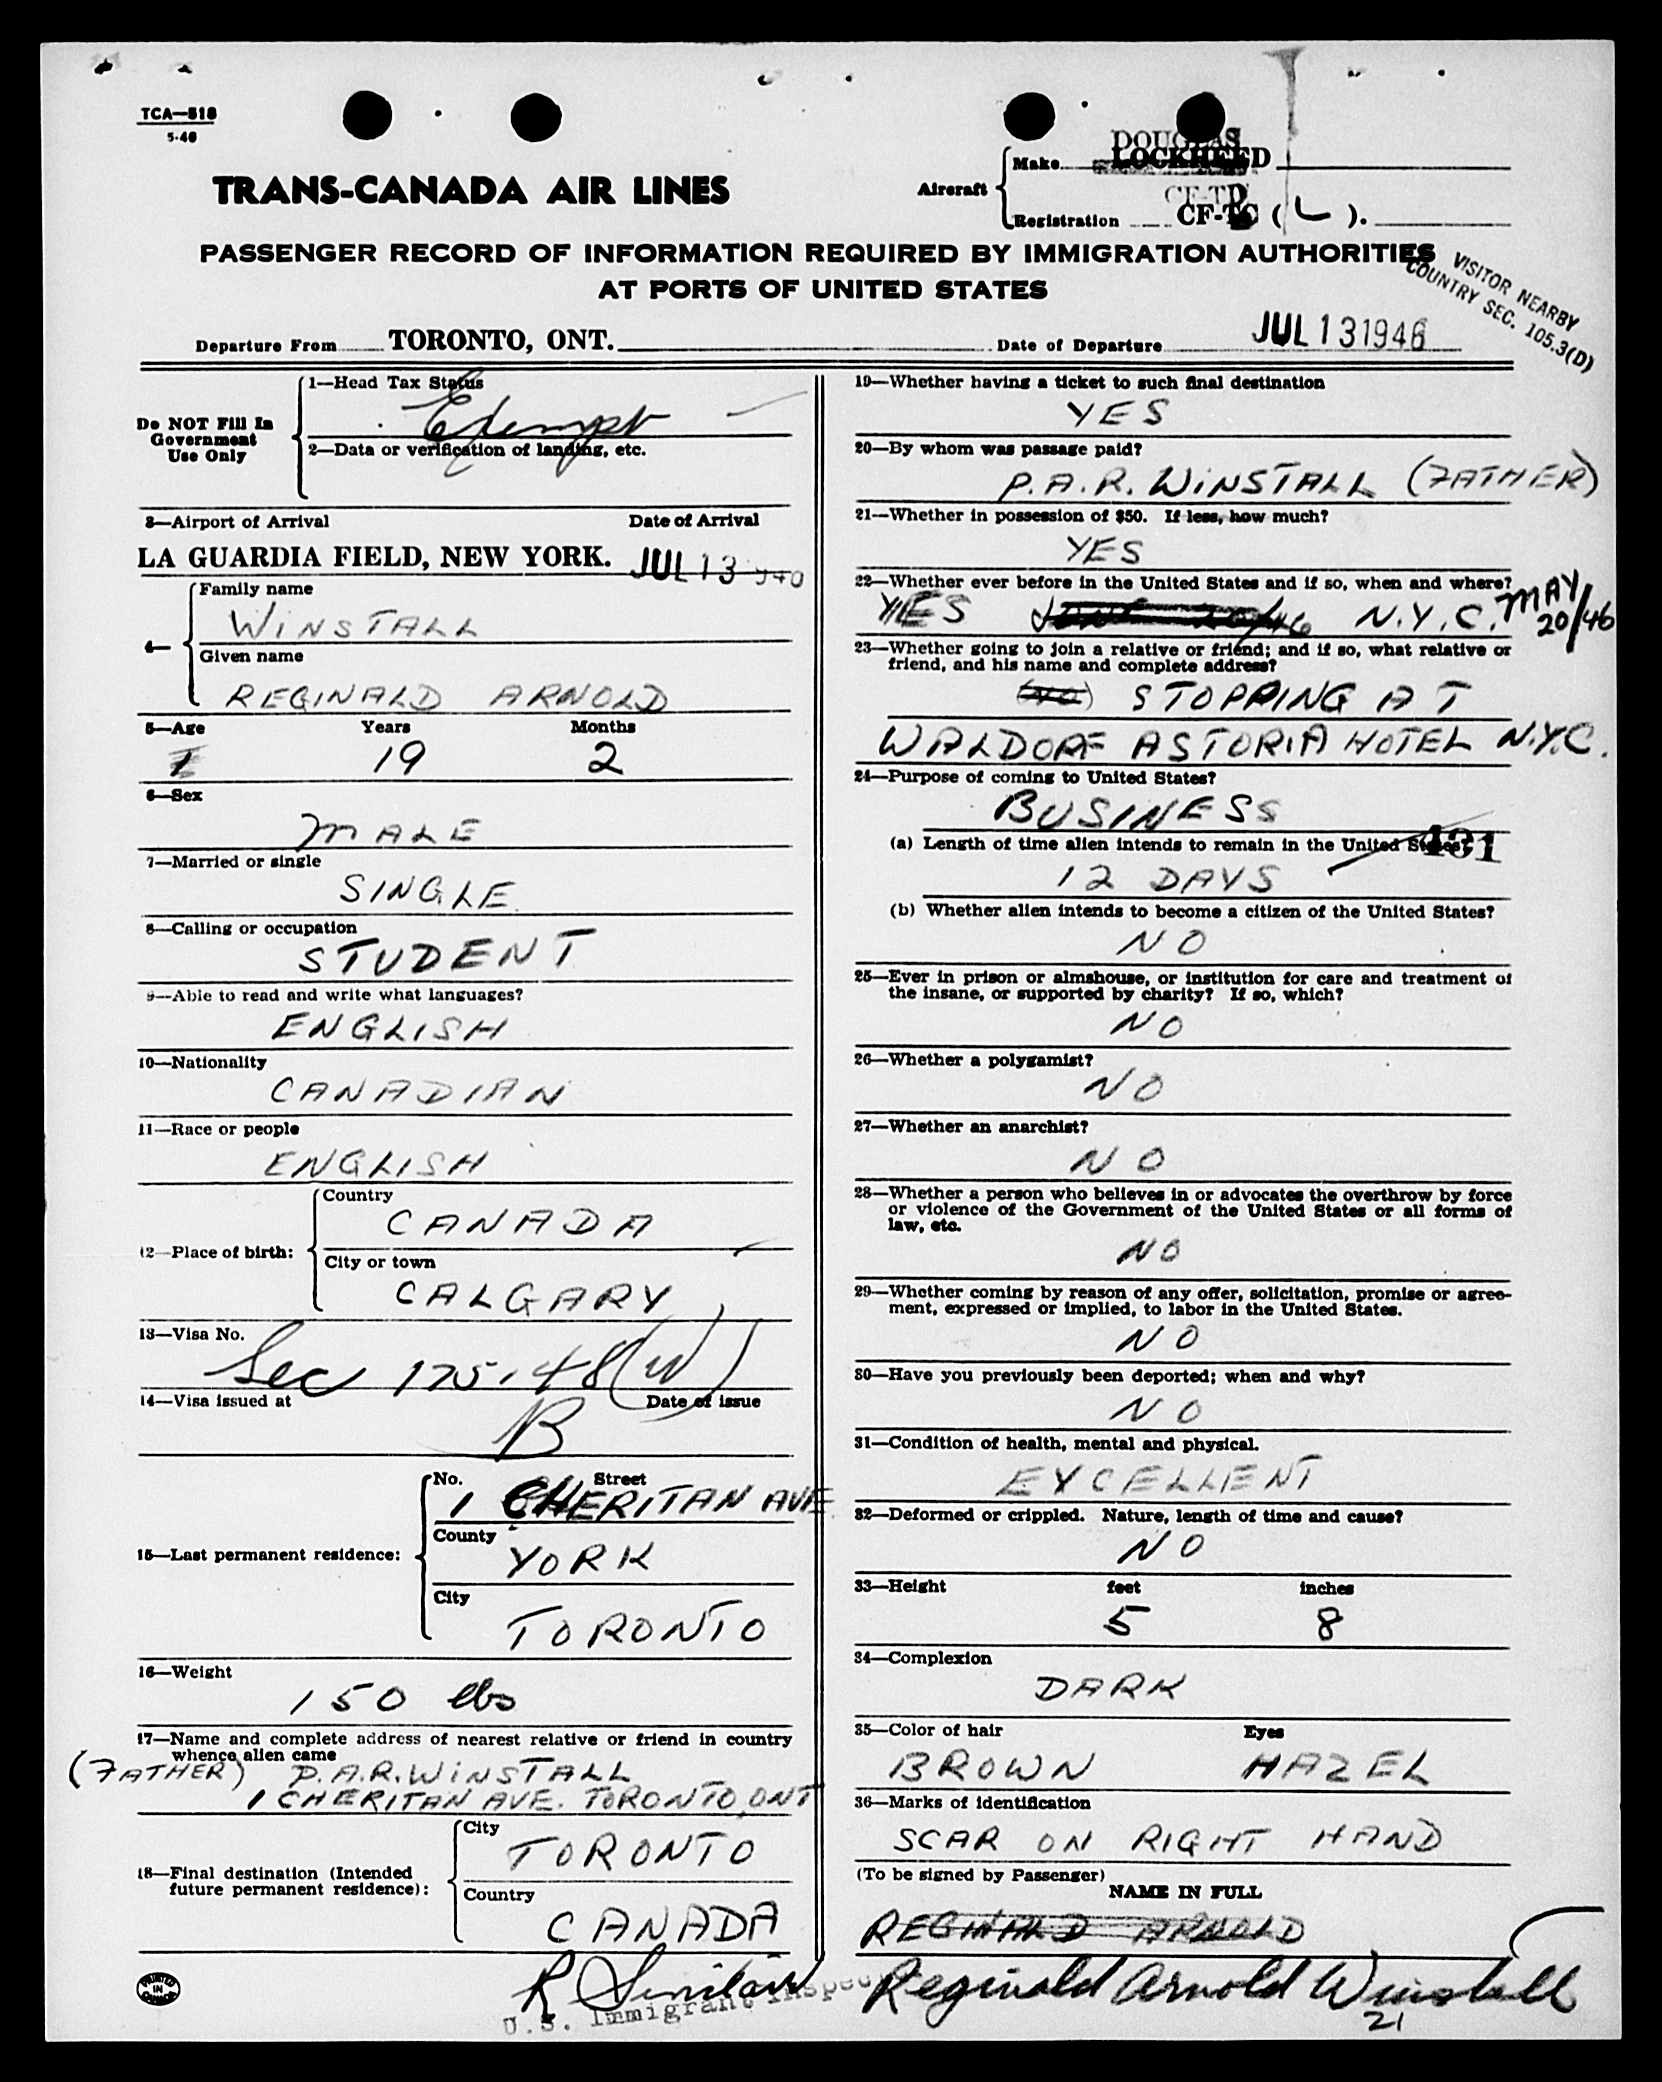 TCA—518
5-46
DOUGLAS
Make LOCKHEED
TRANS-CANADA AIR LINES
Aircraft
CF-TD
Registration CF-TC ( L ).
PASSENGER RECORD OF INFORMATION REQUIRED BY IMMIGRATION AUTHORITIES
AT PORTS OF UNITED STATES
VISITOR NEARBY
COUNTRY SEC. 105.3(D)
Departure From TORONTO, ONT. Date of Departure JUL 13 1946
Do NOT Fill In
Government
Use Only
1—Head Tax Status
Exempt
2—Data or verification of landing, etc.
3—Airport of Arrival Date of Arrival
LA GUARDIA FIELD, NEW YORK. JUL 13
4—
Family name
WINSTALL
Given name
REGINALD ARNOLD
5—Age Years Months
19 2
6—Sex
MALE
7—Married or single
SINGLE
8—Calling or occupation
STUDENT
9—Able to read and write what languages?
ENGLISH
10—Nationality
CANADIAN
11—Race or people
ENGLISH
12—Place of birth:
Country
CANADA
City or town
CALGARY
13—Visa No.
Sec 175.48(W)
14—Visa issued at Date of issue
B
15—Last permanent residence:
No. Street
1 CHERITAN AVE
County
YORK
City
TORONTO
16—Weight
150 lbs
17—Name and complete address of nearest relative or friend in country
whence alien came
(FATHER) P.A.R. WINSTALL
1 CHERITAN AVE. TORONTO, ONT
18—Final destination (Intended
future permanent residence):
City
TORONTO
Country
CANADA
PRINTED
IN
CANADA
R Sinclair
U.S. Immigrant Inspec
19—Whether having a ticket to such final destination
YES
20—By whom was passage paid?
P.A.R. WINSTALL (FATHER)
21—Whether in possession of $50. If less, how much?
YES
22—Whether ever before in the United States and if so, when and where?
YES N.Y.C. MAY
20/46
23—Whether going to join a relative or friend; and if so, what relative or
friend, and his name and complete address?
(NO) STOPPING AT
WALDORF ASTORIA HOTEL N.Y.C.
24—Purpose of coming to United States?
BUSINESS
(a) Length of time alien intends to remain in the United States? 431
12 DAYS
(b) Whether alien intends to become a citizen of the United States?
NO
25—Ever in prison or almshouse, or institution for care and treatment of
the insane, or supported by charity? If so, which?
NO
26—Whether a polygamist?
NO
27—Whether an anarchist?
NO
28—Whether a person who believes in or advocates the overthrow by force
or violence of the Government of the United States or all forms of
law, etc.
NO
29—Whether coming by reason of any offer, solicitation, promise or agree-
ment, expressed or implied, to labor in the United States.
NO
30—Have you previously been deported; when and why?
NO
31—Condition of health, mental and physical.
EXCELLENT
32—Deformed or crippled. Nature, length of time and cause?
NO
33—Height feet inches
5 8
34—Complexion
DARK
35—Color of hair Eyes
BROWN HAZEL
36—Marks of identification
SCAR ON RIGHT HAND
(To be signed by Passenger)
NAME IN FULL
REGINALD ARNOLD
Reginald Arnold Winstall
21